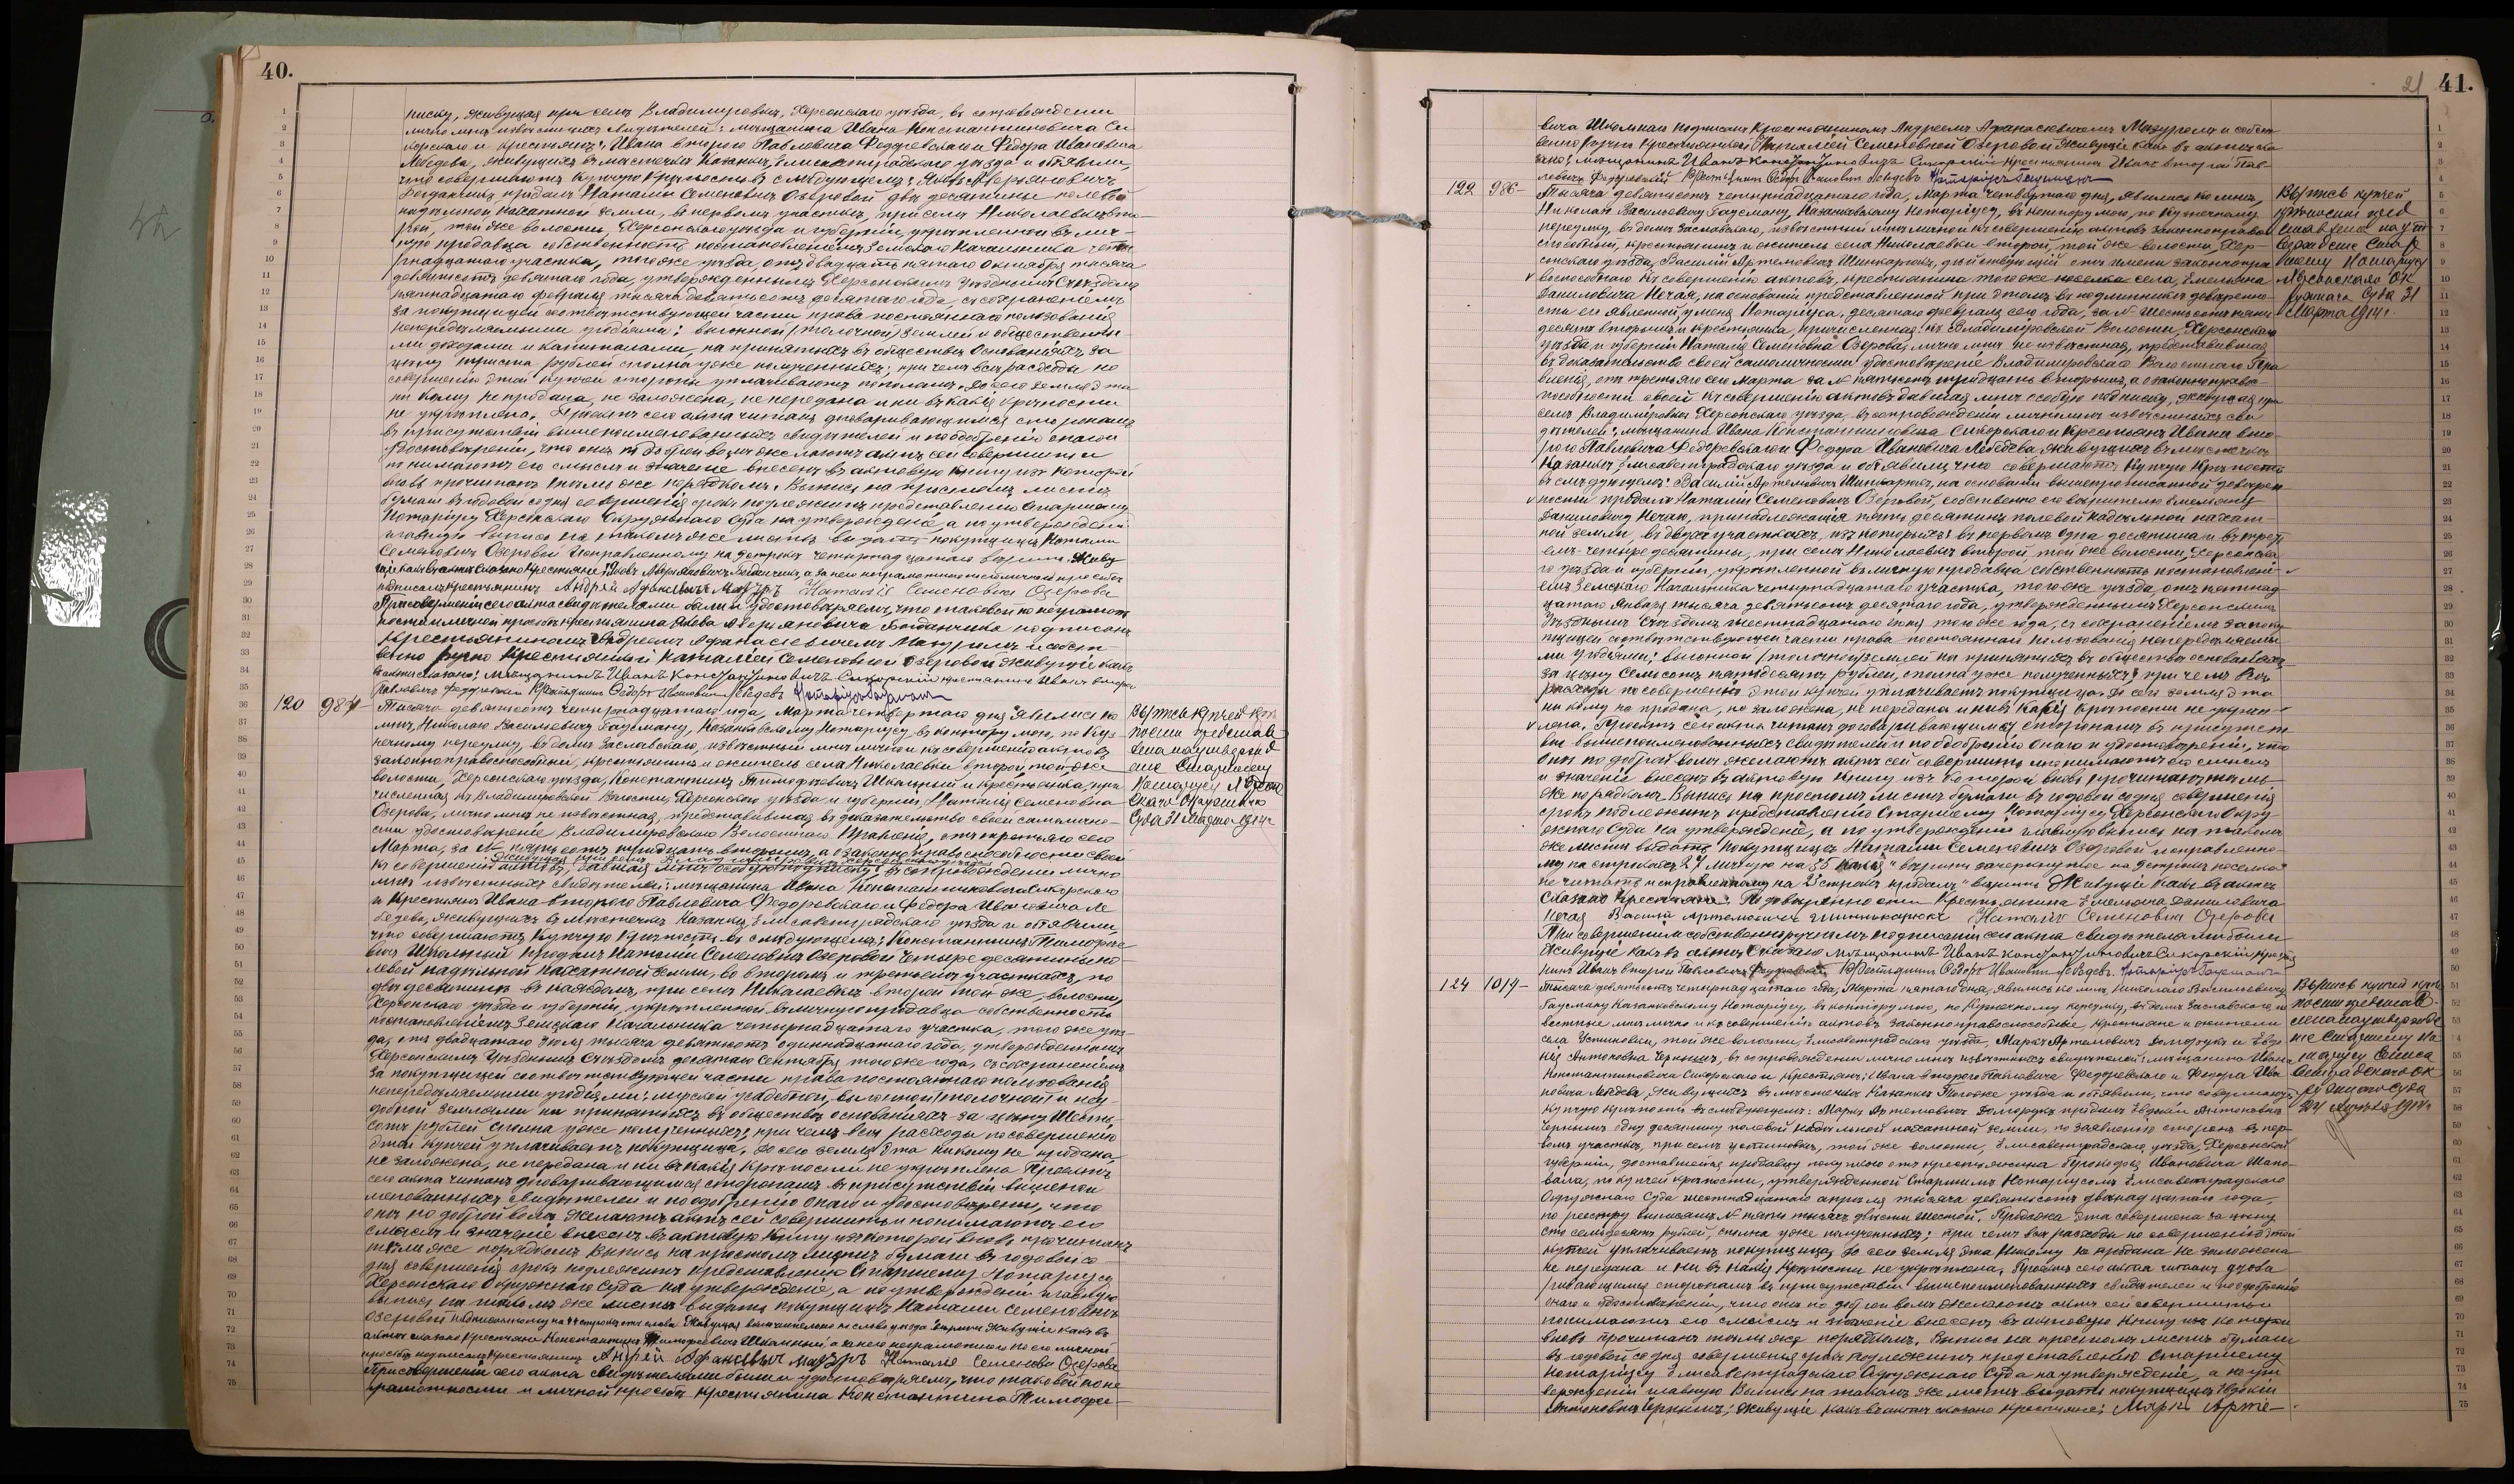 40.
писку, живущая при селе Владимировке, Херсонскаго уезда, въ сопровожденіи
лично мне известныхъ свидетелей: мещанина Ивана Константиновича Си-
корскаго и крестьянъ: Ивана второго Павловича Федоревскаго и Федора Ивановича
Лебедева, живущихъ въ местечке Казанке, Елисаветградскаго уезда и объявили,
что совершаютъ купчую крепость въ следующемъ: Яковъ Аверьяновичъ
Богданчикъ продалъ Наталіи Семеновне Озеровой две десятины полевой
надельной пахатной земли, въ первомъ участке, при селе Николаевке вто-
рой, той же волости, Херсонскаго уезда и губерніи, укрепленной въ лич-
ную продавца собственность постановленіемъ Земскаго Начальника четы-
рнадцатаго участка, того же уезда, отъ двадцать пятаго Октября тысяча
девятьсотъ девятаго года, утвержденнымъ Херсонскимъ Уезднымъ Съездомъ
пятнадцатаго февраля тысяча девятьсотъ десятаго года, съ сохраненіемъ
за покупщицей соответствующей части права постояннаго пользованія
непеределяемыми угодіями: выгонной /толочной/ землей и обществен-
ми доходами и капиталами, на принятыхъ въ обществе основаніяхъ, за
цену триста рублей сполна уже полученныхъ; при чемъ все расходы по
совершенію этой купчей стороны уплачиваютъ пополамъ. До сего земля эта
ни кому не продана, не заложена, не передана и ни въ какія крепости
не укреплена. Проектъ сего акта читанъ договаривающимся сторонамъ
въ присутствіи вышепоименованныхъ свидетелей и по одобреніи онаго и
удостовереніи, что они по доброй воле желаютъ актъ сей совершить и
понимаютъ его смыслъ и значеніе внесенъ въ актовую книгу изъ которой
вновь прочитанъ темъ же порядкомъ. Выпись на простомъ листе
бумаги въ годовой со дня совершенія срокъ подлежитъ представленію Старшему
Нотаріусу Херсонскаго Окружнаго Суда на утвержденіе, а по утвержденіи
главную выпись на такомъ же листе выдать покупщице Наталіи
Семеновне Озеровой
Андрей Афанасьевъ Мазуръ Наталія Семеновна Озерова
При совершеніи сего акта свидетелями были и удостоверяемъ, что таковой по неграмот-
ности и личной просьбе крестьянина Якова Аверьяновича Богданчика подписанъ
крестьяниномъ Андреемъ Афанасьевичемъ Мазуромъ и собст-
венно ручно крестьянкой Наталіей Семеновной Озеровой живущіе какъ
въ акте сказано: Мещанинъ Иванъ Константиновичъ Сикорскій крестьяне Иванъ второй
Павловичъ Федоревскій Крестьянинъ Федоръ Ивановичъ Лебедевъ Нотаріусъ Гаусманъ
120 984 Тысяча девятьсотъ четырнадцатаго года, Марта четвертаго дня явились ко
мне, Николаю Васильевичу Гаусману, Казанковскому Нотаріусу, въ контору мою, по Куз-
нечному переулку, въ доме Заславскаго, известный мне лично и къ совершенію актовъ
законноправоспособный, крестьянинъ и житель села Николаевки второй, той же
волости, Херсонскаго уезда, Константинъ Тимофеевичъ Школьный и крестьянка, при-
численная къ Владимировской Волости, Херсонскаго уезда и губерніи, Наталія Семеновна
Озерова, лично мне не известная, представившая въ доказательство своей самолично-
сти удостовереніе Владимировскаго Волостного Правленія, отъ третьяго сего
Марта, за № пятьсотъ тридцать вторымъ, а о законноправоспособности своей
живущая при селе Владимировке, Херсонскаго уезда
къ совершенію актовъ, давшая мне особую подписку, въ сопровожденіи лично
мне известныхъ свидетелей: мещанина Ивана Константиновича Сикорскаго
и крестьянъ Ивана второго Павловича Федоревскаго и Федора Ивановича Ле-
бедева, живущихъ въ местечке Казанке, Елисаветградскаго уезда и объявили,
что совершаютъ купчую крепость въ следующемъ: Константинъ Тимофее-
вичъ Школьный продалъ Наталіи Семеновне Озеровой четыре десятины по-
левой надельной пахатной земли, во второмъ и третьемъ участкахъ, по
две десятины въ каждомъ, при селе Николаевке второй той же, волости,
Херсонскаго уезда и губерніи, укрепленной въ личную продавца собственность
постановленіемъ Земскаго Начальника четырнадцатаго участка, того же уез-
да, отъ двадцатаго Іюля тысяча девятьсотъ одиннадцатаго года, утвержденнымъ
Херсонскимъ Уезднымъ Съездомъ десятаго Сентября того же года, съ сохраненіемъ
за покупщицей соответствующей части права постояннаго пользованія
непеределяемыми угодіями: мірской усадебной, выгонной /толочной/ и неу-
добной землями на принятыхъ въ обществе основаніяхъ за цену Шесть-
сотъ рублей сполна уже полученныхъ; при чемъ все расходы по совершенію
этой купчей уплачиваетъ покупщица. До сего земля эта никому не продана,
не заложена, не передана и ни въ какія крепости не укреплена. Проектъ
сего акта читанъ договаривающимся сторонамъ въ присутствіи вышепои-
менованныхъ свидетелей и по одобреніи онаго и удостовереніи, что
они по доброй воле желаютъ актъ сей совершить и понимаютъ его
смыслъ и значеніе внесенъ въ актовую книгу изъ которой вновь прочитанъ
темъ же порядкомъ. Выпись на простомъ листе бумаги въ годовой со
дня совершенія срокъ подлежитъ представленію Старшему Нотаріусу
Херсонскаго Окружнаго Суда на утвержденіе, а по утвержденіи главную
выпись на такомъ же листе выдать покупщице Наталіи Семеновне
Озеровой
Андрей Афанасьевъ Мазуръ Наталія Семеновна Озерова
При совершеніи сего акта свидетелями были и удостоверяемъ, что таковой по не-
грамотности и личной просьбе крестьянина Константина Тимофее-
Выпись купчей кре-
пости представ-
лена на утвержд-
еніе Старшему
Нотаріусу Херсон-
скаго Окружнаго
Суда 31 Марта 1914 г.
21 41.
вича Школьнаго подписанъ Крестьяниномъ Андреемъ Афанасьевичемъ Мазуромъ и собст-
венно ручно Крестьянкой Наталіей Семеновной Озеровой живущіе какъ въ акте ска-
зано: мещанинъ Иванъ Константиновичъ Сикорскій крестьянинъ Иванъ второй Пав-
ловичъ Федоревскій Крестьянинъ Федоръ Ивановичъ Лебедевъ Нотаріусъ Гаусманъ
122 986 Тысяча девятьсотъ четырнадцатаго года, Марта четвертаго дня, явились ко мне,
Николаю Васильевичу Гаусману, Казанковскому Нотаріусу, въ контору мою, по Кузнечному
переулку, въ доме Заславскаго, известный мне лично и къ совершенію актовъ законноправо-
способный, крестьянинъ и житель села Николаевки второй, той же волости, Хер-
сонскаго уезда, Василій Артемовичъ Шинкарюкъ, действующій отъ имени законнопра-
воспособнаго къ совершенію актовъ, крестьянина того же поселка села, Емельяна
Даниловича Нечая, на основаніи представленной при этомъ въ подлиннике довереннос-
ти его явленной, у меня Нотаріуса, десятаго февраля сего года, за № шестьсотъ пять-
десятъ вторымъ и крестьянка, причисленная къ Владимировской Волости, Херсонскаго
уезда и губерніи Наталія Семеновна Озерова, лично мне не известная, представившая
въ доказательство своей самоличности удостовереніе Владимировскаго Волостного Пра-
вленія, отъ третьяго сего Марта за № пятьсотъ тридцать вторымъ, а о законноправо-
способности своей къ совершенію актовъ давшая мне особую подписку, живущая при
селе Владимировке Херсонскаго уезда, въ сопровожденіи лично мне известныхъ сви-
детелей: мещанина Ивана Константиновича Сикорскаго и Крестьянъ Ивана вто-
рого Павловича Федоревскаго и Федора Ивановича Лебедева, живущихъ въ местечке
Казанке, Елисаветградскаго уезда и объявили что совершаютъ купчую крепость
въ следующемъ: Василій Артемовичъ Шинкарюкъ, на основаніи вышепрописанной доверен-
ности продалъ Наталіи Семеновне Озеровой, собственно его верителю Емельяну
Даниловичу Нечаю, принадлежащія пять десятинъ полевой надельной пахат-
ной земли, въ двухъ участкахъ, изъ которыхъ: въ первомъ одна десятина и въ треть-
емъ четыре десятины, при селе Николаевке второй, той же волости, Херсонска-
го уезда и губерніи, укрепленной въ личную продавца собственность постановлені-
емъ Земскаго Начальника четырнадцатаго участка, того же уезда, отъ пятнад-
цатаго Января тысяча девятьсотъ десятаго года, утвержденнымъ Херсонскимъ
Уезднымъ Съездомъ шестнадцатаго Іюня того же года, съ сохраненіемъ за поку-
пщицей соответствующей части права постояннаго пользованія непеределяемы-
ми угодіями: выгонной /толочной/ землей на принятыхъ въ обществе основаніяхъ
за цену семьсотъ пятьдесятъ рублей, сполна уже полученныхъ; при чемъ все
расходы по совершенію этой купчей уплачиваетъ покупщица. До сего земля эта
ни кому не продана, не заложена, не передана и ни въ какія крепости не укреп-
лена. Проектъ сего акта читанъ договаривающимся сторонамъ въ присутст-
віи вышепоименованныхъ свидетелей и по одобреніи онаго и удостовереніи, что
они по доброй воле желаютъ актъ сей совершить и понимаютъ его смыслъ
и значеніе внесенъ въ актовую книгу изъ которой вновь прочитанъ темъ
же порядкомъ. Выпись на простомъ листе бумаги въ годовой со дня совершенія
срокъ подлежитъ представленію Старшему Нотаріусу Херсонскаго Окру-
жнаго Суда на утвержденіе, а по утвержденіи главную выпись на такомъ
же листе выдать покупщице Наталіи Семеновне Озеровой исправленно-
му на строкахъ 27 „личную“ на 35 „какія“ верить зачеркнутое на строке „поселка“
не читать исправленному на 23 строке „продалъ“ верить Живущіе какъ въ акте
сказано Крестьяне: По доверенности Крестьянина Емельяна Даниловича
Нечая Василій Артемовичъ Шинькарюкъ Наталія Семеновна Озерова
При совершеніи и собственноручномъ подписаніи сего акта свидетелями были
живущіе какъ въ акте сказано мещанинъ Иванъ Константиновичъ Сикорскій крестья-
нинъ Иванъ второй Павловичъ Федоревскій Крестьянинъ Федоръ Ивановичъ Лебедевъ. Нотаріусъ Гаусманъ
124 1019 Тысяча девятьсотъ четырнадцатаго года, Марта пятаго дня, явились ко мне, Николаю Васильевичу
Гаусману Казанковскому Нотаріусу, въ контору мою, по Кузнечному переулку, въ доме Заславскаго из-
вестные мне лично и къ совершенію актовъ законноправоспособные, крестьяне и жители
села Устиновки, той же волости, Елисаветградскаго уезда, Маркъ Артемовичъ Доморукъ и Евдо-
кія Антоновна Чернышъ, въ сопровожденіи лично мне известныхъ свидетелей: мещанина Ивана
Константиновича Сикорскаго и крестьянъ: Ивана второго Павловича Федоревскаго и Федора Ива-
новича Лебедева, живущихъ въ местечке Казанке того же уезда и объявили, что совершаютъ
купчую крепость въ следующемъ: Маркъ Артемовичъ Доморукъ продалъ Евдокіи Антоновне
Чернышъ одну десятину полевой надельной пахатной земли, по заявленію сторонъ въ пер-
вомъ участке, при селе Устиновке, той же волости, Елисаветградскаго уезда, Херсонской
губерніи, доставшейся продавцу покупкою отъ крестьянина Ивановича Шапо-
вала, по купчей крепости, утвержденной Старшимъ Нотаріусомъ Елисаветградскаго
Окружнаго Суда шестнадцатаго апреля тысяча девятьсотъ двенадцатаго года,
по реестру № пять тысячъ двести шестой. Продажа эта совершена за цену
сто семьдесятъ рублей, сполна уже полученныхъ; при чемъ все расходы по совершенію этой
купчей уплачиваетъ покупщица. До сего земля эта никому не продана не заложена
не передана и ни въ какія крепости не укреплена. Проектъ сего акта читанъ догова-
ривающимся сторонамъ въ присутствіи вышепоименованныхъ свидетелей и по одобреніи
онаго и удостовереніи, что они по доброй воле желаютъ актъ сей совершить и
понимаютъ его смыслъ и значеніе внесенъ въ актовую книгу изъ которой
вновь прочитанъ темъ же порядкомъ. Выпись на простомъ листе бумаги
въ годовой со дня совершенія срокъ подлежитъ представленію Старшему
Нотаріусу Елисаветградскаго Окружнаго Суда на утвержденіе, а по утв-
ержденіи главную выпись на такомъ же листе выдать покупщице Евдокіи
Антоновне Чернышъ; живущіе какъ въ акте сказано крестьяне: Маркъ Арте-
Выпись купчей
крепости пред-
ставлена на утв-
ержденіе Стар-
шему Нотаріусу
Херсонскаго Ок-
ружнаго Суда 31
Марта 1914 г.
Выпись купчей кре-
пости представ-
лена на утвержде-
ніе Старшему Но-
таріусу Елиса-
ветградскаго Ок-
ружнаго Суда
1914 г.